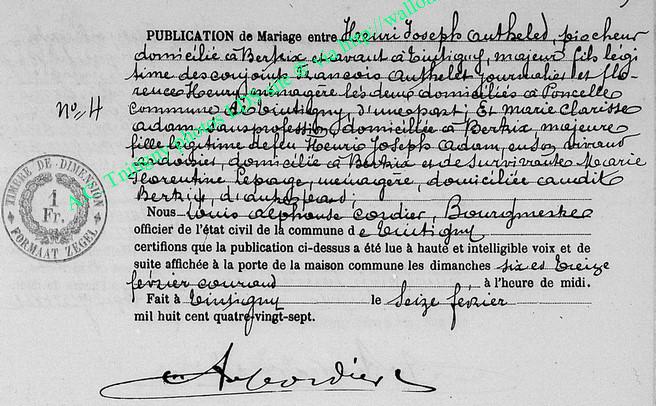 PUBLICATION de Mariage entre Henri Joseph Authelet, piocheur
domicilié à Bertrix et avant à Tintigny, majeur fils légi
time des conjoints François Authelet journalier et Flo
rence Henry, ménagère les deux domiciliés à Poncelle
commune de Tintigny, d'une part; Et Marie Clarisse
Adam, sans profession, domiciliée à Bertrix majeure
fille légitime de feu Henri Joseph Adam, en son vivant
domicilié à Bertrix et de survivante Marie
Florentine Lepage, ménagère, domiciliée audit
Bertrix, d'autre part;
N° 4
TIMBRE DE DIMENSION
1
Fr.
FORMAAT ZEGEL
Nous Louis Alphonse Cordier, Bourgmestre
officier de l'état civil de la commune de Tintigny
certifions que la publication ci-dessus a été lue à haute et intelligible voix et de
suite affichée à la porte de la maison commune les dimanches six et treize
février courant à l'heure de midi.
Fait à Tintigny le seize février
mil huit cent quatre-vingt-sept.
A Cordier
AC Tintigny photos site via http://wallo